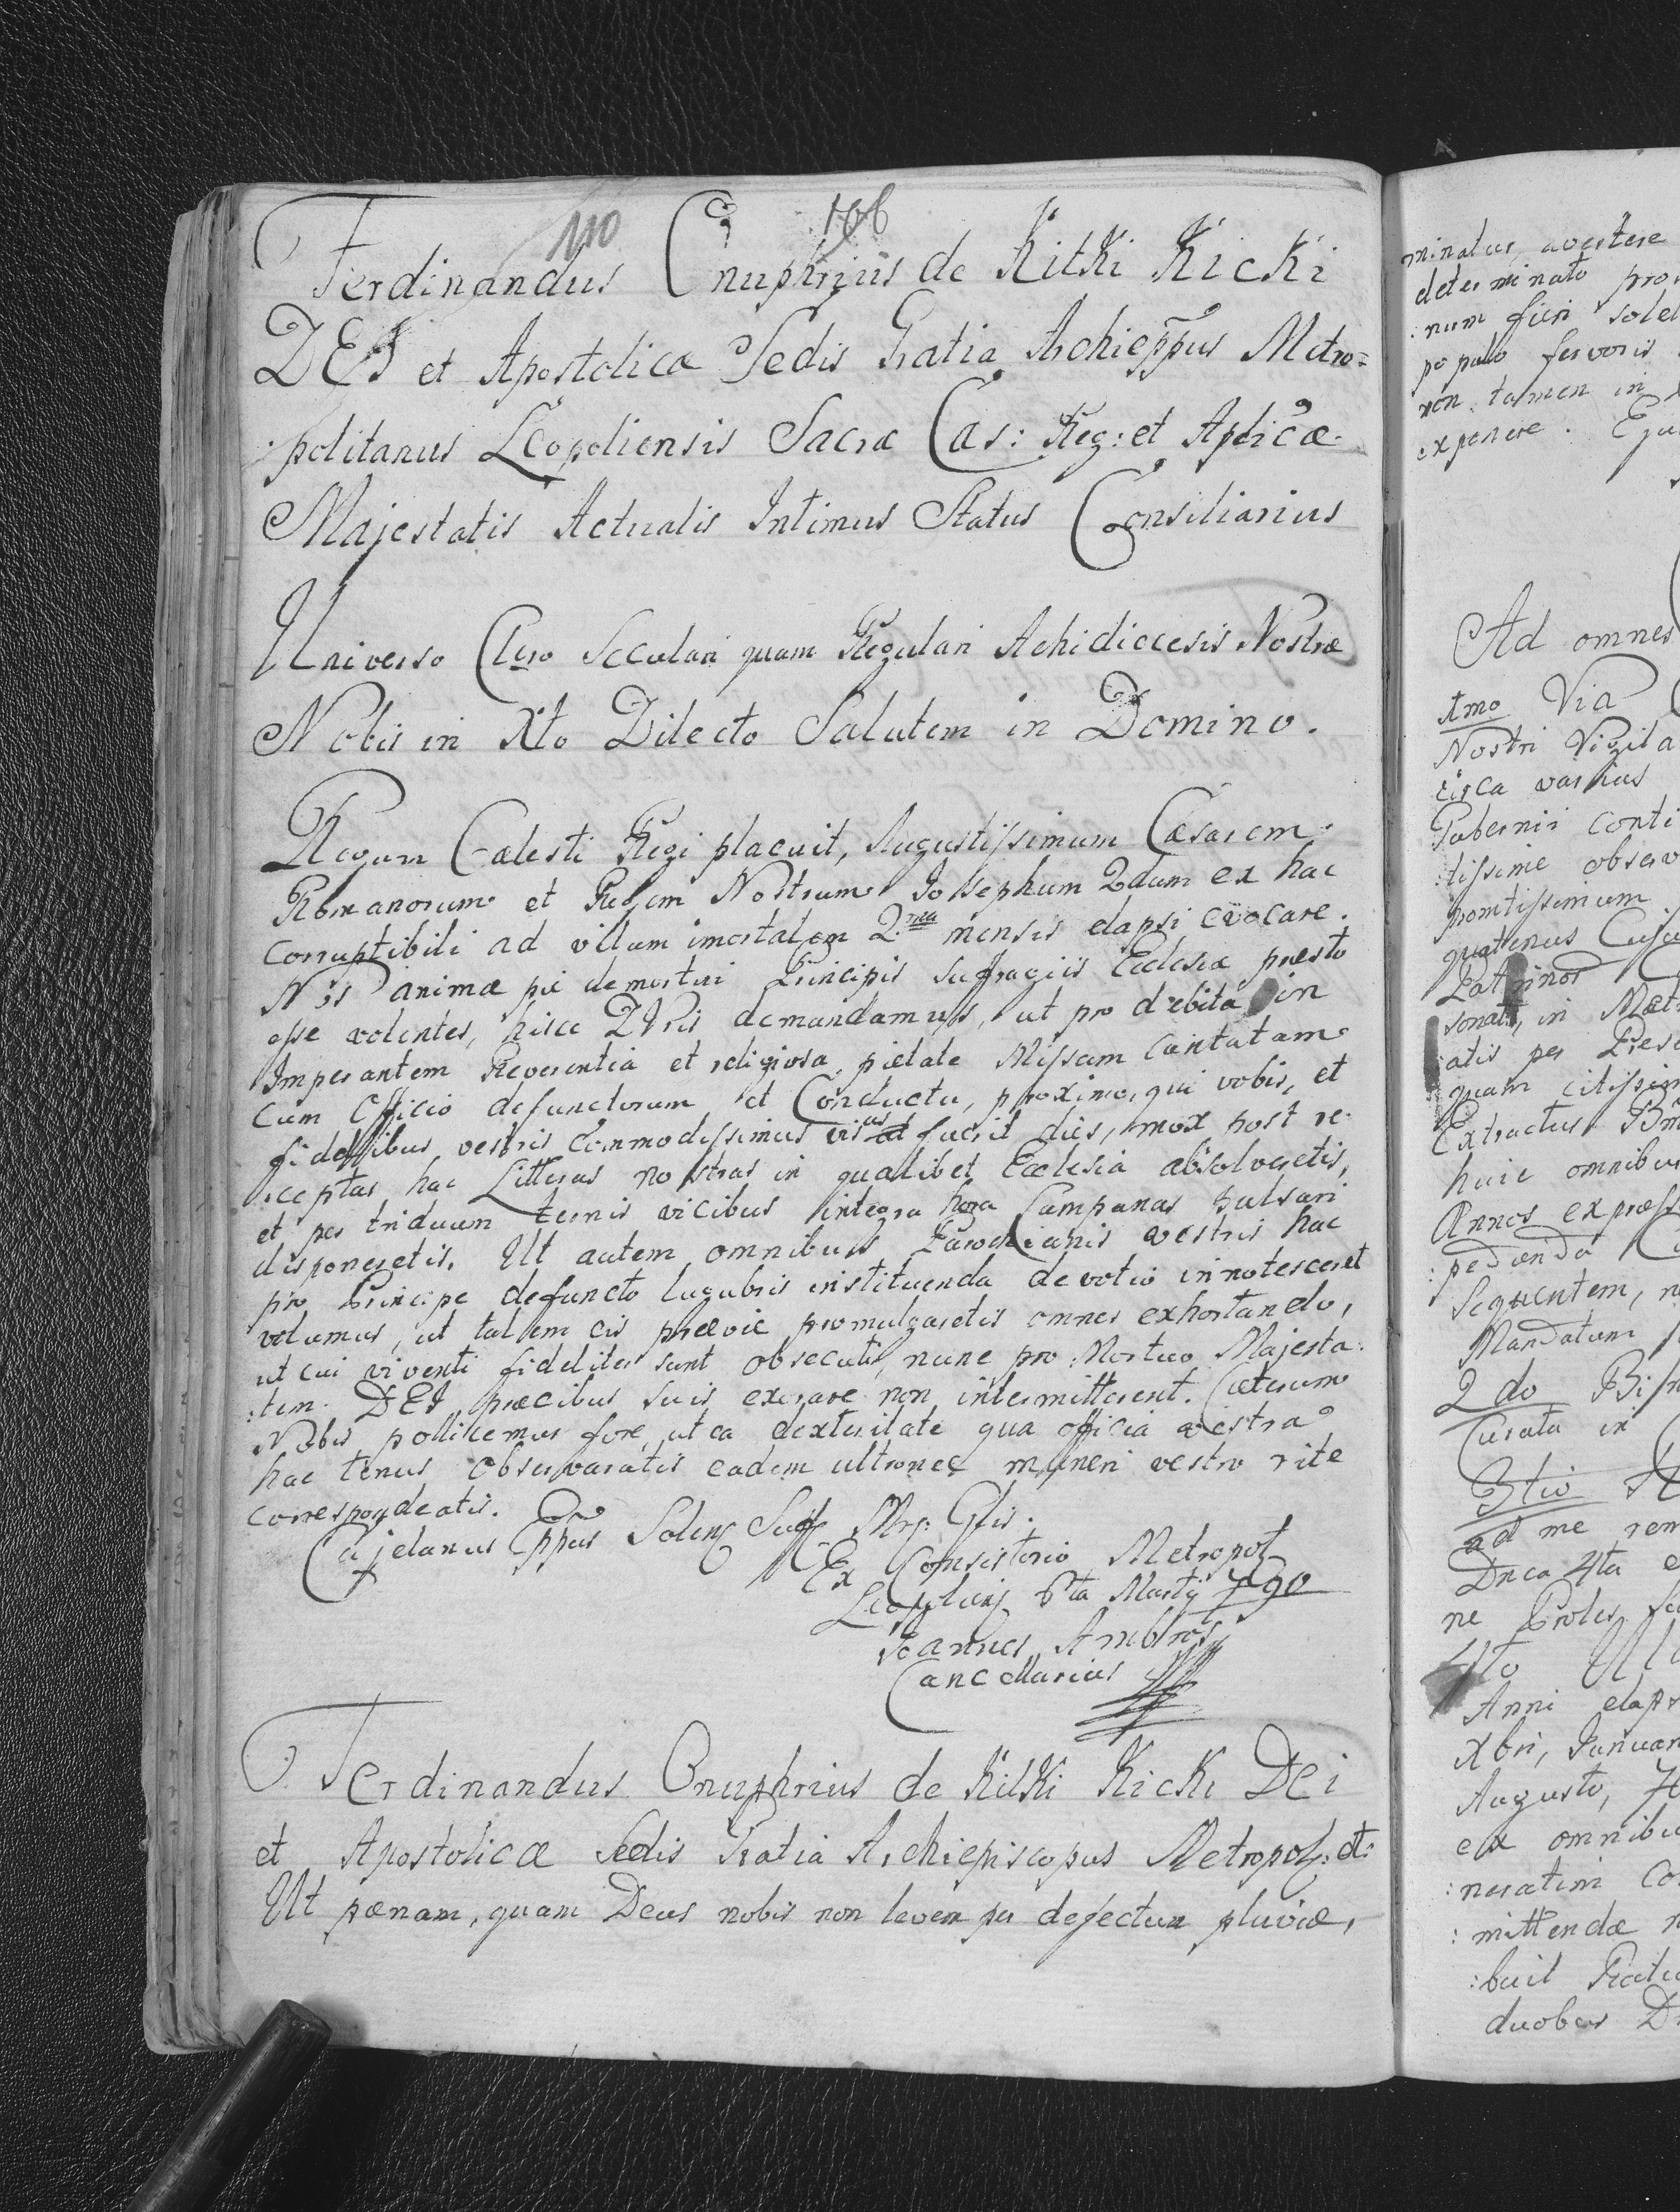 110 106
Ferdinandus Onuphrius de Kitki Kicki
DEI et Apostolicæ Sedis Gratia Archiep̃pus Metro=
:politanus Leopoliensis Sacræ Cæs: Reg: et Aplicæ
Majestatis Actualis Intimus Status Consiliarius
Universo Clero Seculari quam Regulari Achidiocesis Nostræ
Nobis in Xto Dilecto Salutem in Domino.
Regum Cælesti Regi placuit, Augustissimum Cæsarem
Romanorum et Regem Nostrum Iosephum 2dum ex hac
corruptibili ad vitam imortalem 2. mensis elapsi evocare.
Nos animæ pie demortui Principis suffragiis Ecclesiæ præsto
esse volentes, hisce DVris demandamus, ut pro debita in
Imperantem Reverentia et religiosa pietate Missam Cantatam
cum Officio defunctorum et Conductu, proximo, qui vobis, et
fidelibus vestris commodissimus visus fuerit dies, mox post re
:ceptas has Litteras nostras in qualibet Ecclesia absolveretis,
et per triduum ternis vicibus integra hora Campanas pulsari
disponeretis. Ut autem omnibus Parochianis vestris hac
pro Principe defuncto lugubris instituenda devotio innotesceret
volumus, ut talem eis prævie promulgaretis omnes exhortando,
ut cui viventi fideliter sunt obsecuti, nunc pro Mortuo Majesta:
:tem DEI præcibus suis exorare non intermitterent. Cæterum
Nobis pollicemur fore, ut ea dexteritate qua officia vestra
hac tenus observaratis eadem ultronee muneri vestro rite
correspondeatis.
Cajetanus Ep̃pus Solens Suff Glis.
Ex Consistorio Metropol
6ta Martij 790
Ioannes Ambros
Cancellarius
Ferdinandus Onuphrius de Kitski Kicki Dei
et Apostolicæ Sedis Gratia Archiepiscopus Metropol: et:
Ut pænam, quam Deus nobis non levem per defectum pluviæ,
minatur, avertere
determinato
:num fieri
populo fervoris
non tamen in
exponere.
Ad omnes
1mo Via
Nostri Vigila
circa varius
Gubernii conti
:tissime observ
promtissimum
quatenus
in
:atis per
quam
Extractus
huic omnibus
Annos
:pedienda
Sequentem,
Mandatum
2do
Curata in
3tio
ad me rem
Dnca 4ta
ne Proles
4to
Anni elaps
Xbri, Ianuar
Augusto,
ex omnibus
:neratim
:mittendæ
:buit
duobus